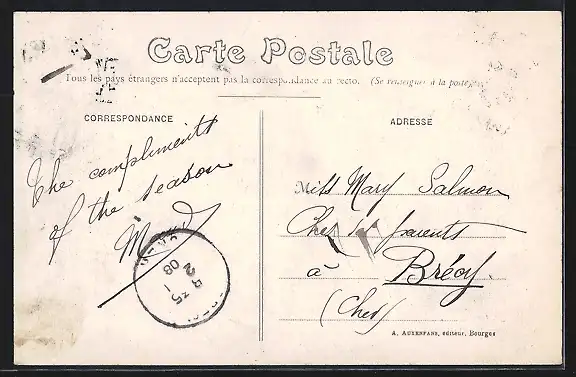 Carte Postale
Tous les pays étrangers n'acceptent pas la correspondance au recto. (Se renseigner à la poste).
CORRESPONDANCE
ADRESSE
The compliments
of the season
Miss Mary Salmon
Chez parents
à Brécy.
(Cher)
2 35
08
A. AUXENFANS, éditeur, Bourges